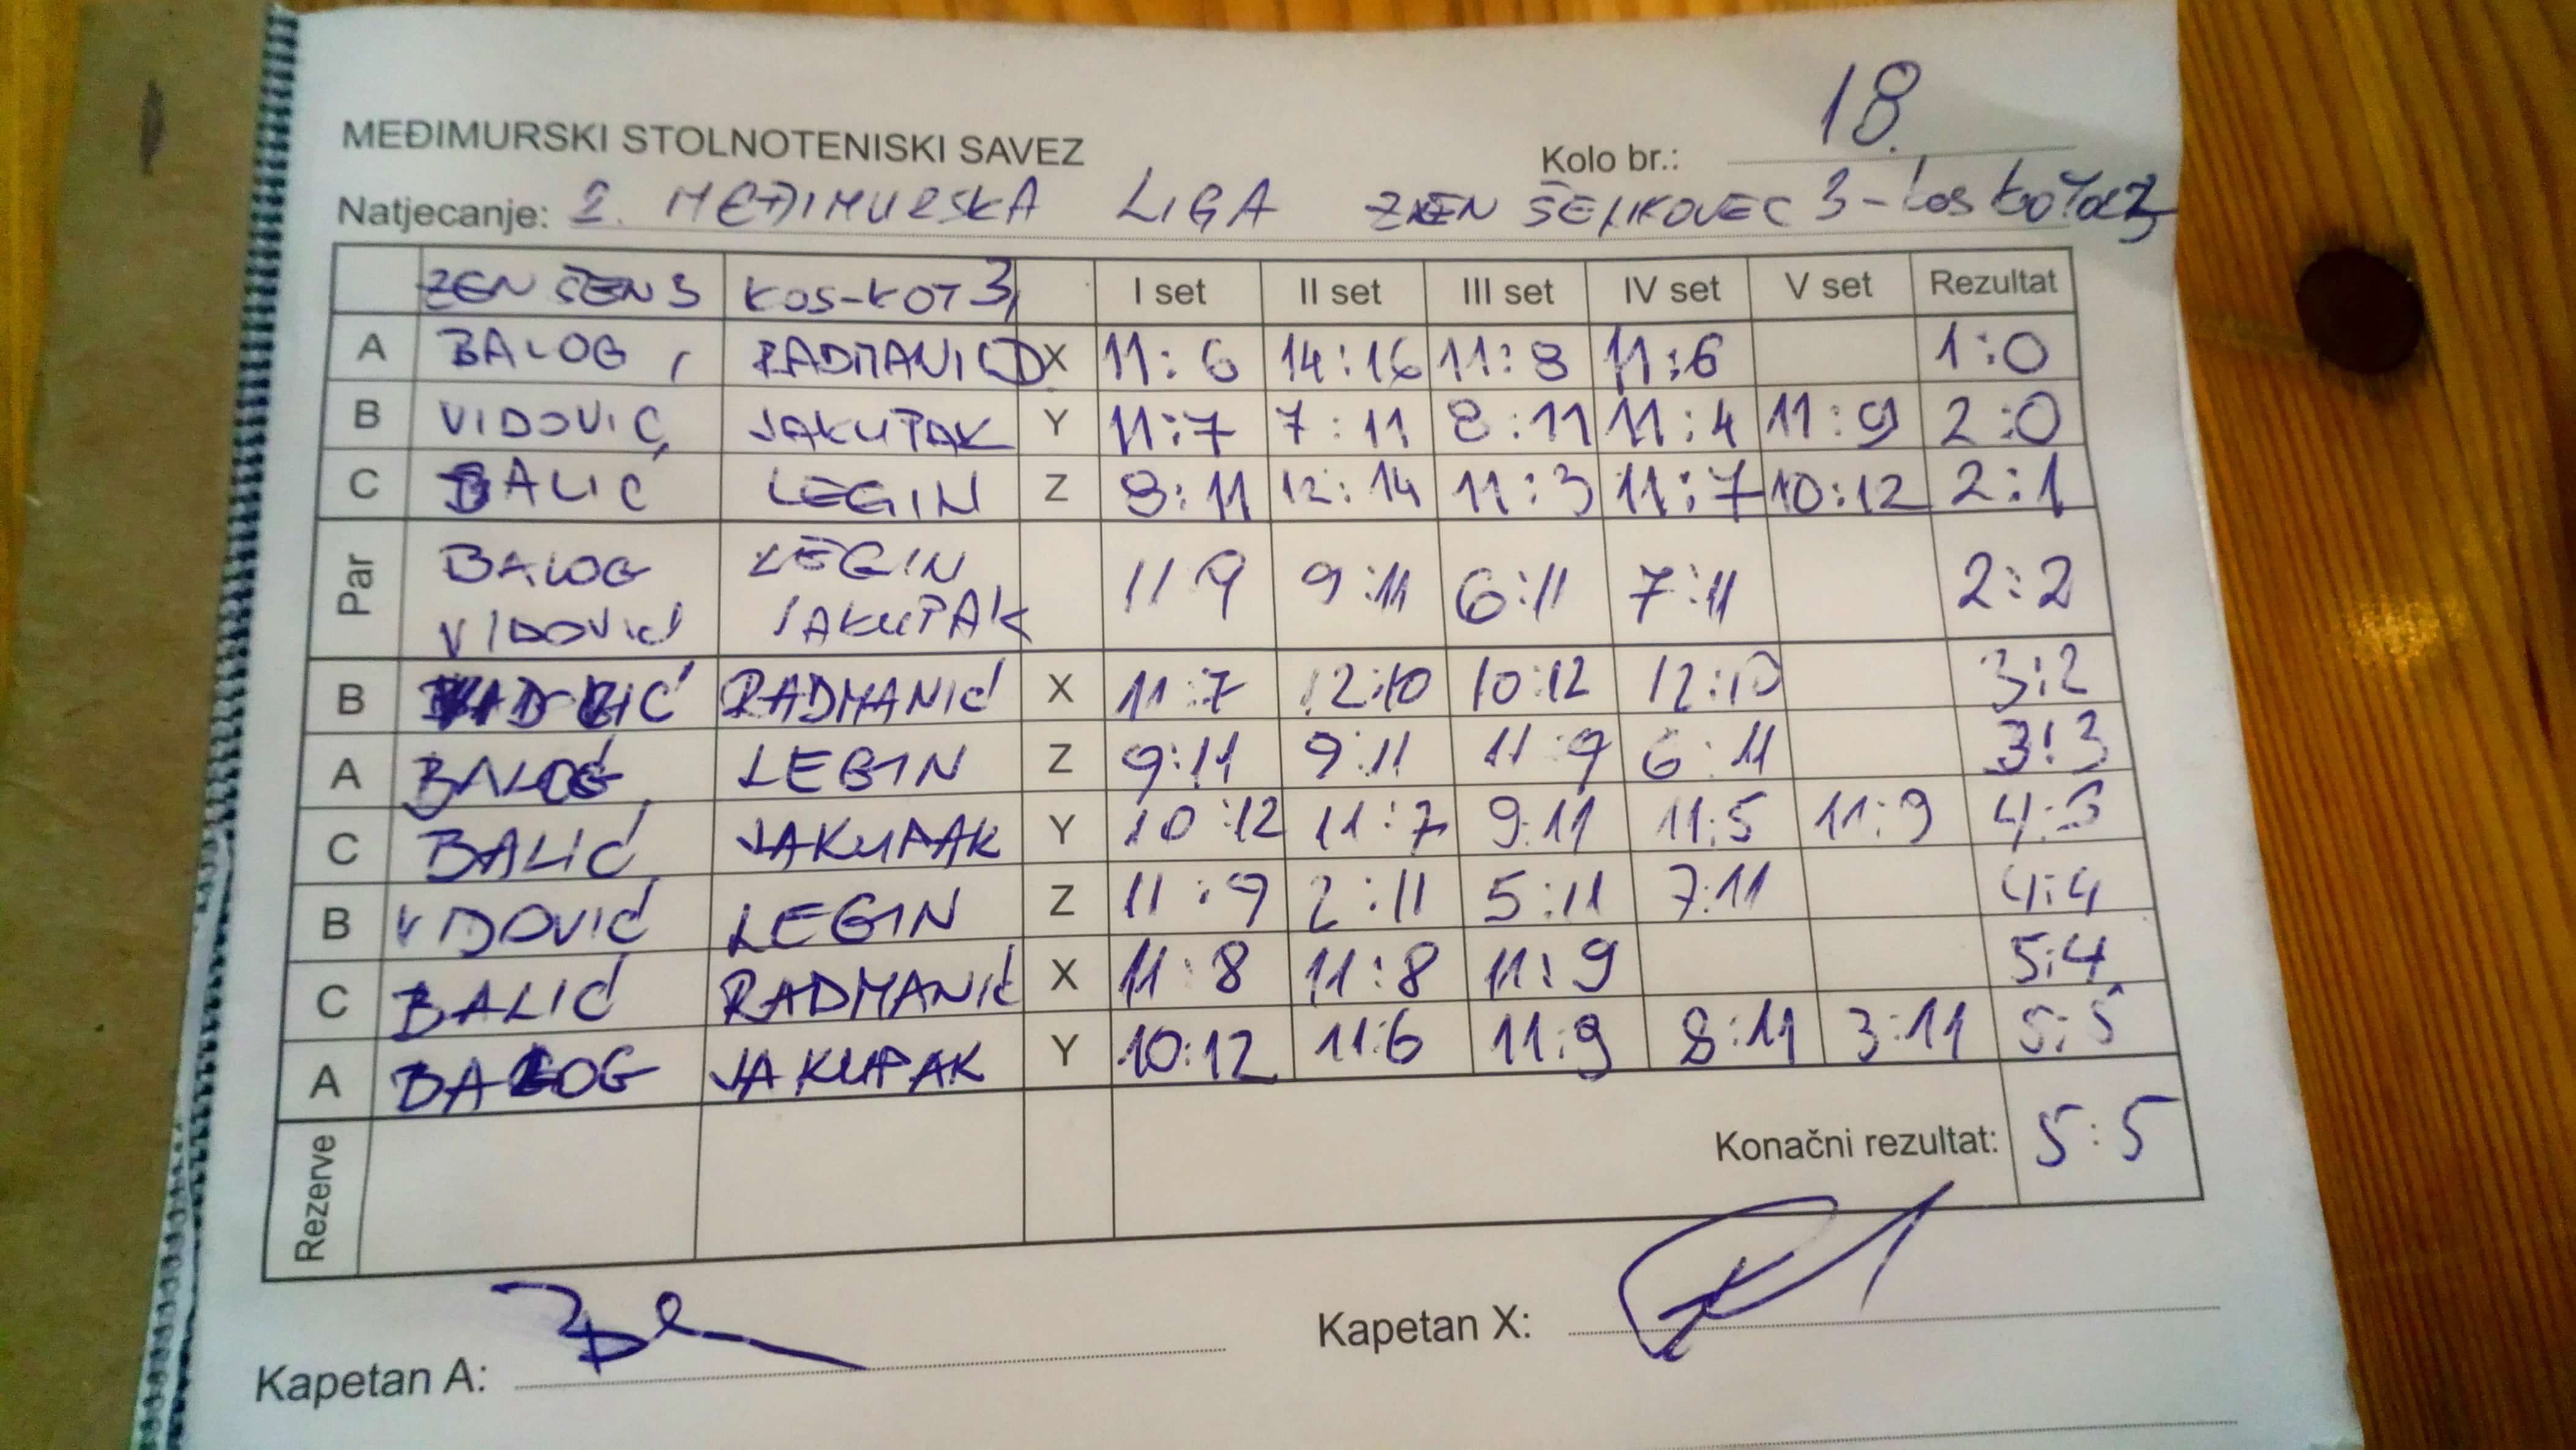 MEĐIMURSKI STOLNOTENISKI SAVEZ
Kolo br.: 18.
Natjecanje: 2. MEĐIMURSKA LIGA ZKEN ŠENKOVEC 3 - kos kotač 3
ZEN ŠEN 3 KOS-KOT 3 I set II set III set IV set V set Rezultat
A BALOG RADMANIĆ X 11:6 14:16 11:8 11:6 1:0
B VIDOVIĆ JAKUPAK Y 11:7 7:11 8:11 11:4 11:9 2:0
C BALIĆ LEGIN Z 8:11 12:14 11:3 11:7 10:12 2:1
Par BALOG LEGIN 11 9 9:11 6:11 7:11 2:2
VIDOVIĆ JAKUPAK
B RADMANIĆ X 11:7 12:10 10:12 12:10 3:2
A BALOG LEGIN Z 9:11 9:11 11:9 6:11 3:3
C BALIĆ JAKUPAK Y 10:12 11:7 9:11 11:5 11:9 4:3
B VIDOVIĆ LEGIN Z 11:9 2:11 5:11 7:11 4:4
C BALIĆ RADMANIĆ X 11:8 11:8 11:9 5:4
A BALOG JAKUPAK Y 10:12 11:6 11:9 8:11 3:11 5:5
Rezerve Konačni rezultat: 5:5
Kapetan A: Kapetan X: